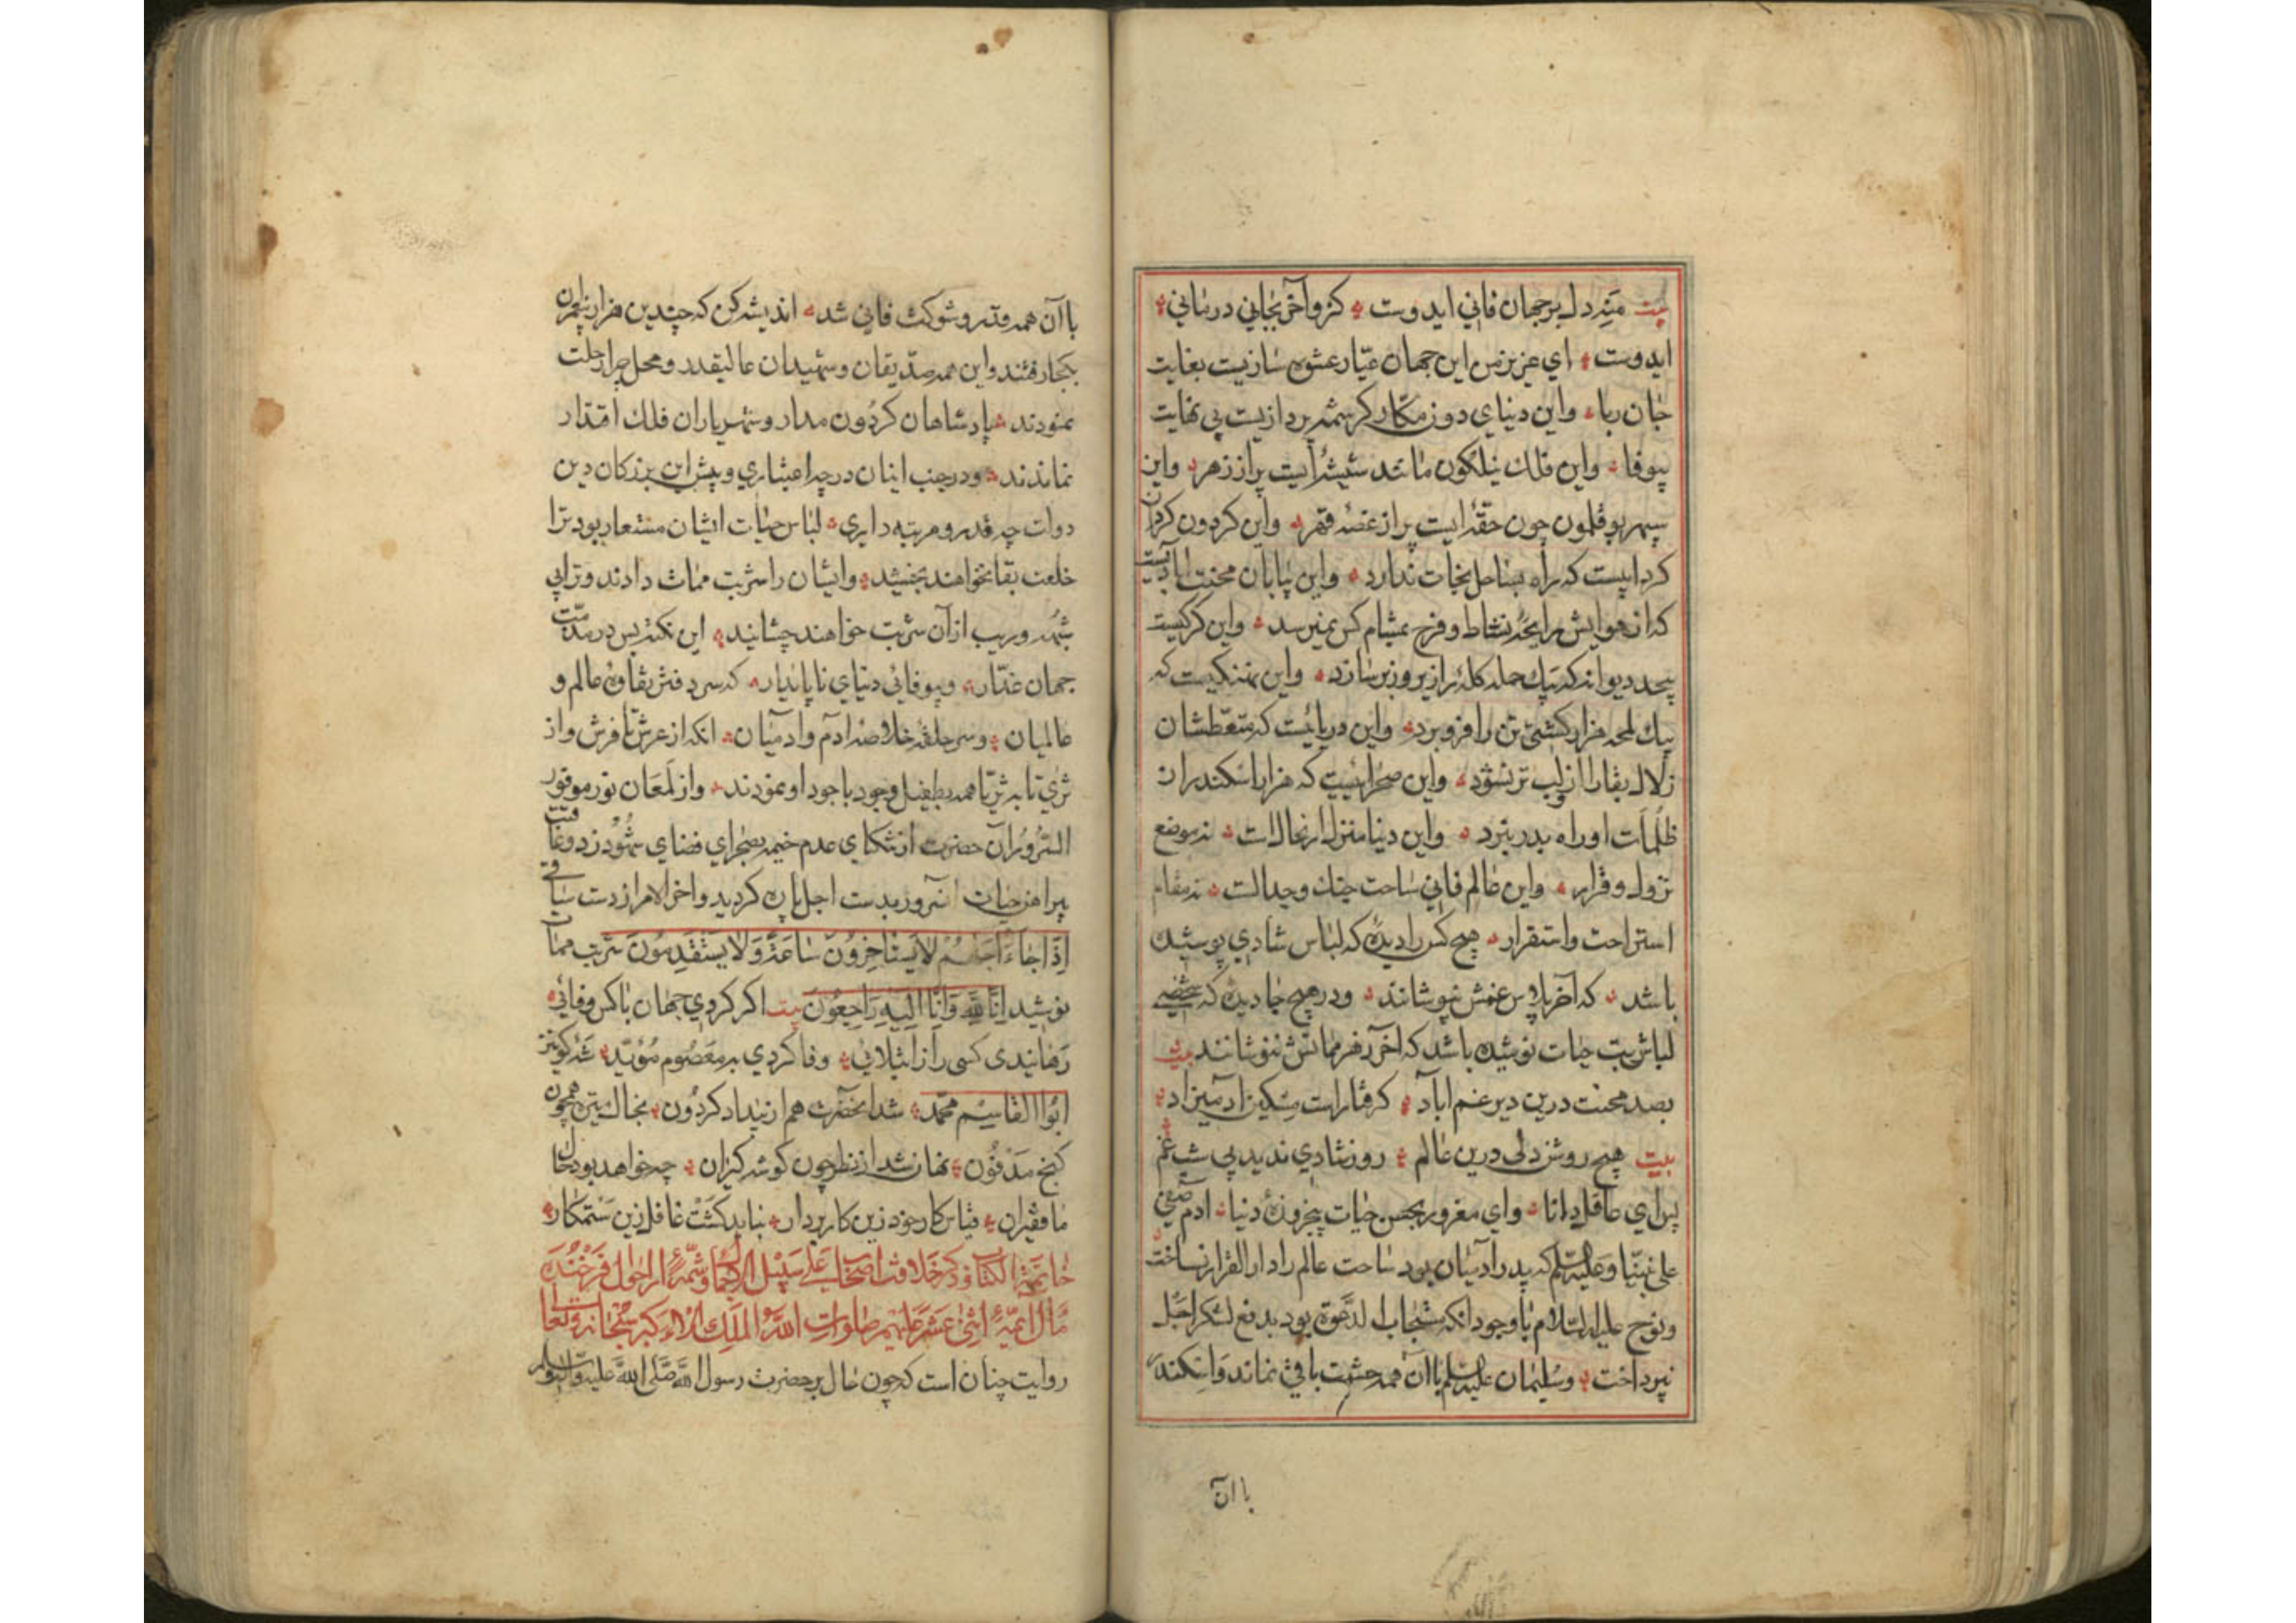 بیت منه دل بر جهان فانی ایدوست ؞ کزو آخر بجانی درمانی ؞
ایدوست ؞ ای عزیز من این جهان عیّار عشوه سازیست بغایت
جان ربا ؞ واین دنیای دون مکّار کرشمه پردازیست بی نهایت
بیوفا ؞ واین فلک نیلکون مانند شیشهٔ ایست پر از زهر ؞ واین
سپهر بوقلمون چون حقهٔ ایست پر از غصه قهر ؞ واین کردون کردان
کردابیست که راه بساحل نجات ندارد ؞ واین بیابان محنت آبادیست
که از هوایش رایحهٔ نشاط وفرح بمشام کس نمیرسد ؞ واین کرکیست
دیوانه که بیک حمله کلهٔ را زیر وزبر سازد ؞ واین نهنکیست که
بیک لمحه هزار کشتی تن را فرو برد ؞ واین دریائیست که متعطّشان
زلال بقا را ازو لب تر نشود ؞ واین صحرائیست که هزار اسکندر از
ظُلُمات او راه بدر نبرد ؞ واین دنیا منزل ارتحالست ؞ نه موضع
نزول وقرار ؞ واین عالم فانی ساحت جنک وجدالست ؞ نه مقام
استراحت واستقرار ؞ هیچ کس را دیدهٔ که لباس شادی پوشیده
باشد ؞ که آخر پلاس غمش نپوشانند ؞ ودر هیچ جا دیدهٔ که شخصی
شربت حیات نوشیده باشد که آخر زهر مماتش ننوشانند بیت
بصد محنت درین دیر غم اباد ؞ کرفتارست مسکین آدمیزاد ؞
بیت هیچ روشن دلی درین عالم ؞ روز شادی ندید بی شب غم
پس ای عاقل دانا ؞ وای مغرور بحسن حیات پنجروزهٔ دنیا ؞ ادم صفی
علی نبیّنا وعلیه السّلم که پدر آدمیان بود ساحت عالم را دار القرار نساخت
ونوح علیه السّلام با وجود انکه مستجاب الدّعوة بود بدفع لشکر اجل
نپرداخت ؞ وسلیمان علیه السّلم با آن همه حشمت باقی نماند واسکندر
با ان
با آن همه قدر وشوکت فانی شد ؞ اندیشه کن که چندین هزار پیغمبران
بکجا رفتند واین همه صدّیقان وشهیدان عالیقدر ومحل چرا رحلت
نمودند ؞ پادشاهان کردون مدار وشهریاران فلک اقتدار
نماندند ؞ ودر جنب اینان در چه اعتباری وپیش این بزرکان دین
دولت چه قدر ومرتبه داری ؞ لباس حیات ایشان مستعار بود ترا
خلعت بقا نخواهند بخشید ؞ وایشان را شربت ممات دادند وترا بی
شبهه وریب از آن شربت خواهند چشانید ؞ این نکته بس در مذمّت
جهان غدّار ؞ وبیوفائی دنیای ناپایدار ؞ که سر دفتر نقاوهٔ عالم و
عالمیان ؞ وسر حلقهٔ خلاصه ادم وادمیان ؞ انکه از عرش تا فرش واز
ثری تا به ثریّا همه بطفیل وجود با جود او نمودند ؞ واز لمعان نور موفور
السّرور آن حضرت از تنکنای عدم خیمه بصحرای فضای شهود زد وعاقبت
پیراهن حیات آنسرور بدست اجل پاره کردید واخر الامر از دست ساقی
اِذا جاءَ اَجَلُهُم لا یَستَاخِرُونَ ساعَةً وَلا یَستَقدِمُونَ شربت ممات
نوشید اِنّا لِلّه وَاِنّا اِلَیهِ راجِعُونَ بیت اکر کردی جهان با کس وفائی ؞
رهانیدی کسی را از ابتلائی ؞ وفا کردی بر معصوم مؤیّد ؞ شه کونین
ابوالقاسم محمّد ؞ شد آنحضرت هم از بیداد کردون ؞ بخاک تیره همچون
کنج مدفون ؞ نهان شد از نظر چون کوشه کیران ؞ چه خواهد بود حال
ما فقیران ؞ قیاس کار خود زین کار بردار ؞ نباید کشت غافل زین ستمکار ؞
خاتمة الکتاب در ذکر خلافت اصحاب علی سبیل الاجمال وشمّهٔ از احوال فرخنده
مآل ائمّهٔ اثنی عشر علیهم صلوات اللّه الملک الاکبر سبحانه وتعالی
روایت چنان است که چون حال بر حضرت رسول اللّه صَلّی اللّه علیه وآله وسلم